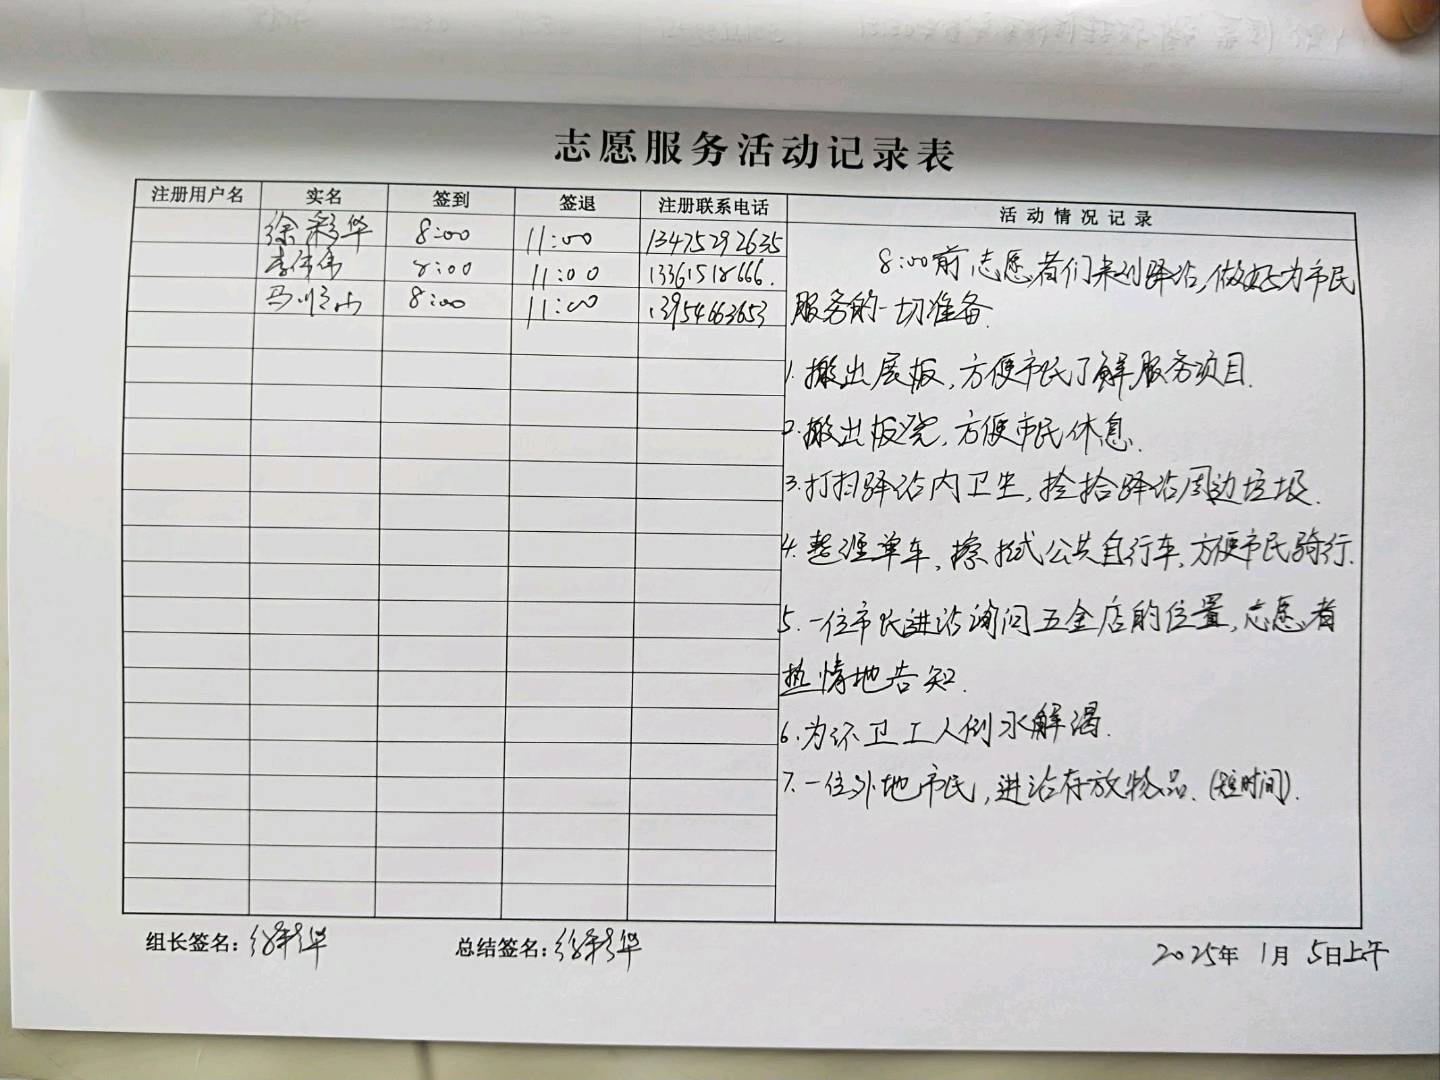 志愿服务活动记录表
注册用户名 实名 签到 签退 注册联系电话 活动情况记录
徐彩华 8:00 11:00 13475292635
李伟伟 8:00 11:00 13361518666.
马顺山 8:00 11:00 13954663653
8:00前志愿者们来到驿站,做好为市民
服务的一切准备.
1.搬出展板,方便市民了解服务项目.
2.搬出板凳,方便市民休息.
3.打扫驿站内卫生,捡拾驿站周边垃圾.
4.整理单车,擦拭公共自行车,方便市民骑行.
5.一位市民进站询问五金店的位置,志愿者
热情地告知.
6.为环卫工人倒水解渴.
7.一位外地市民,进站存放物品.(短时间).
组长签名:徐彩华 总结签名:徐彩华 2025年1月5日上午